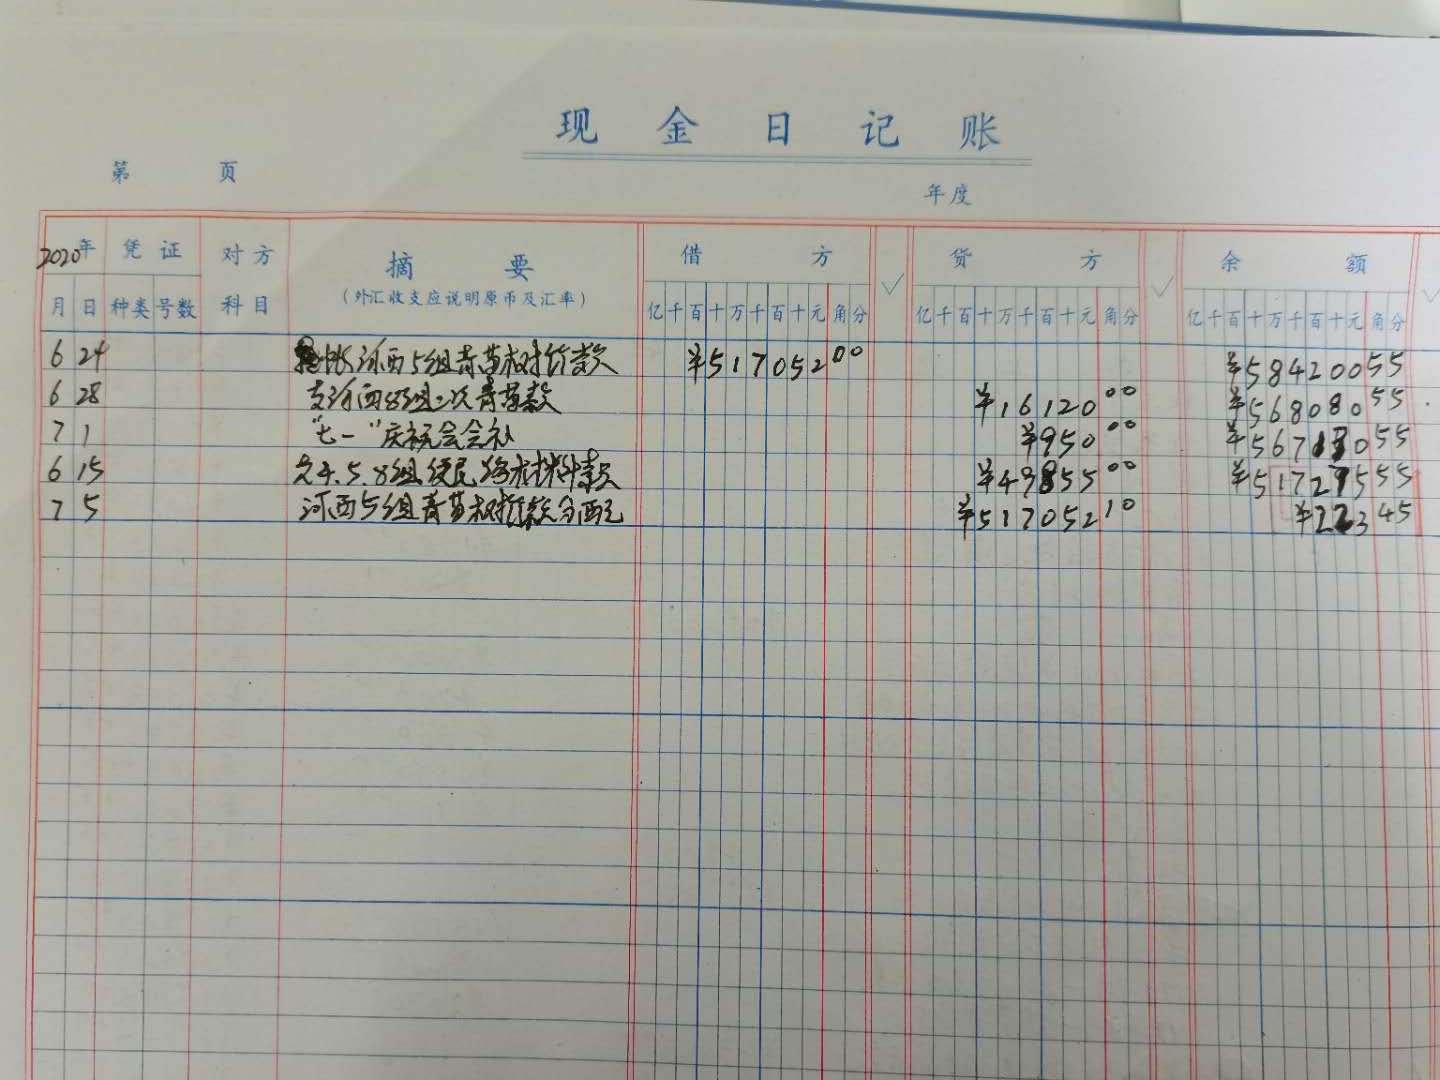 现金日记账
第 页
年度
2020年 凭证 对方 摘要 借方 ✓ 贷方 ✓ 余额 ✓
月 日 种类 号数 科目 (外汇收支应说明原币及汇率) 亿千百十万千百十元角分 亿千百十万千百十元角分 亿千百十万千百十元角分
6 24 河西5组青苗树价款 ¥517052 00 ¥584200 55
6 28 支河西8组二次青苗款 ¥16120 00 ¥568080 55
7 1 "七一"庆祝会会补 ¥950 00 ¥567130 55
6 15 4.5.8组便民路材料款 ¥49855 00 ¥517275 55
7 5 河西5组青苗树价款分配 ¥517052 10 ¥223 45